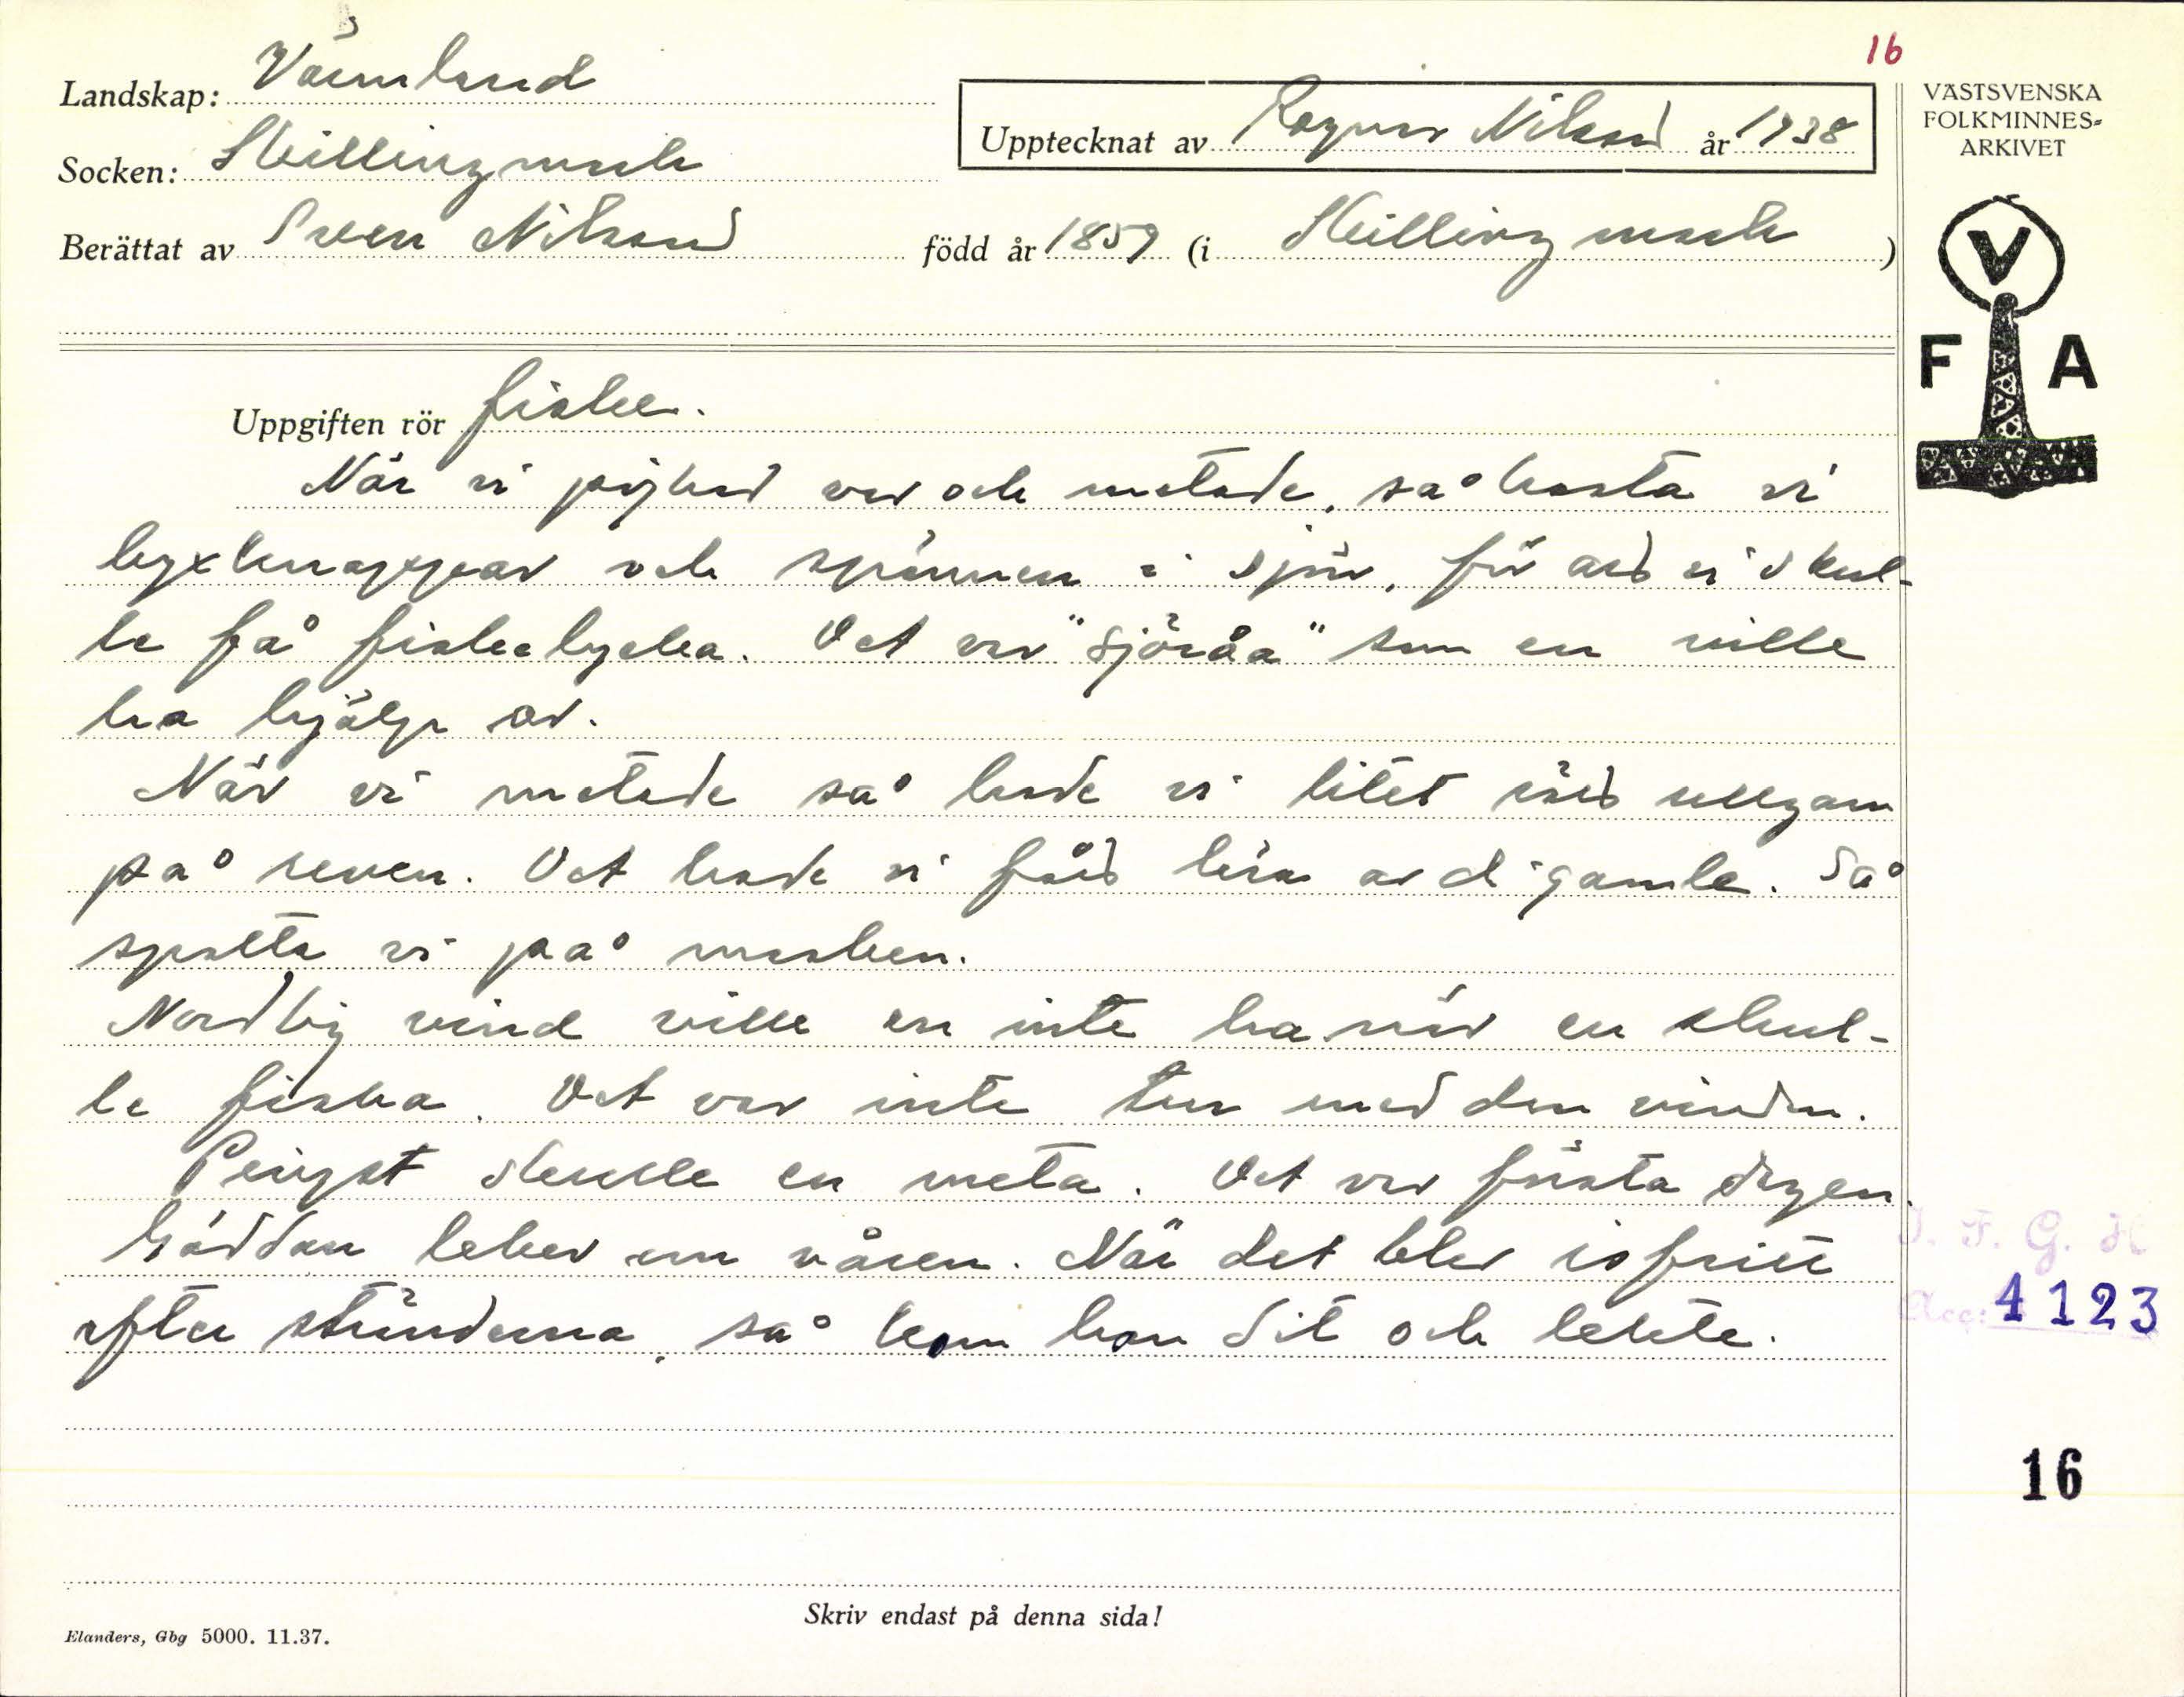 16
Landskap: Värmland
Socken: Skillingmark
Berättat av Sven Nilsson född år 1859 (i Skillingmark)
Upptecknat av Ragnar Nilsson år 1938
VÄSTSVENSKA
FOLKMINNES-
ARKIVET
V
F A
Uppgiften rör fiske.
När vi pojkar var och metade, så kasta vi
byxknappar och spännen i sjön, för att vi skul-
le få fiskelycka. Det var "sjöråa" som en ville
ha hjälp av.
När vi metade så hade vi litet rött ullgarn
på reven. Det hade vi fått lära av di gamle. Så
spotta vi på masken.
Nordlig vind ville en inte ha när en skul-
le fiska. Det var inte tur med den vinden.
Pingst skulle en meta. Det var första dagen.
Gäddan leker om våren. När det blev isfritt
efter stränderna, så kom han dit och lekte.
I. F. G. H
Acc: 4123
16
Skriv endast på denna sida!
Elanders, Gbg 5000. 11.37.